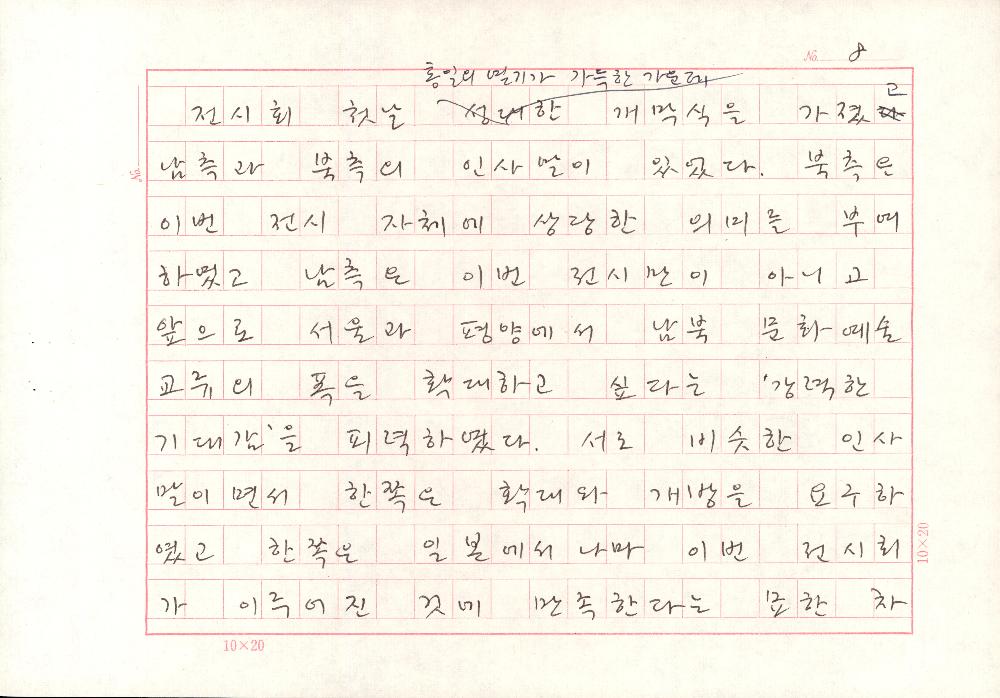 No. 8
통일의 열기가 가득한 가운데
전시회 첫날 성대한 개막식을 가졌고
남측과 북측의 인사말이 있었다. 북측은
이번 전시 자체에 상당한 의미를 부여
하였고 남측은 이번 전시만이 아니고
앞으로 서울과 평양에서 남북 문화예술
교류의 폭을 확대하고 싶다는 '강력한
기대감'을 피력하였다. 서로 비슷한 인사
말이면서 한쪽은 확대와 개방을 요구하
였고 한쪽은 일본에서나마 이번 전시회
가 이루어진 것에 만족한다는 묘한 차
No.
10×20
10×20